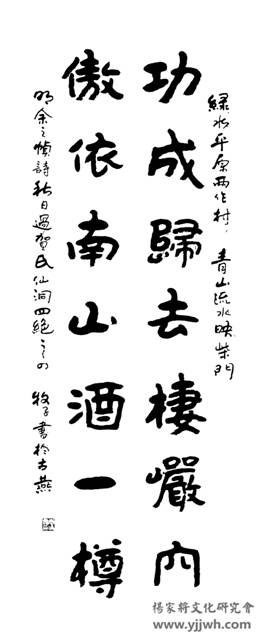 綠水平原两作村，青山流水映柴門
功成歸去棲巖內
傲依南山酒一樽
明余之幀詩秋日過賀氏仙洞四絕之四 牧子書於古燕
楊家將文化研究會
www.yjjwh.com